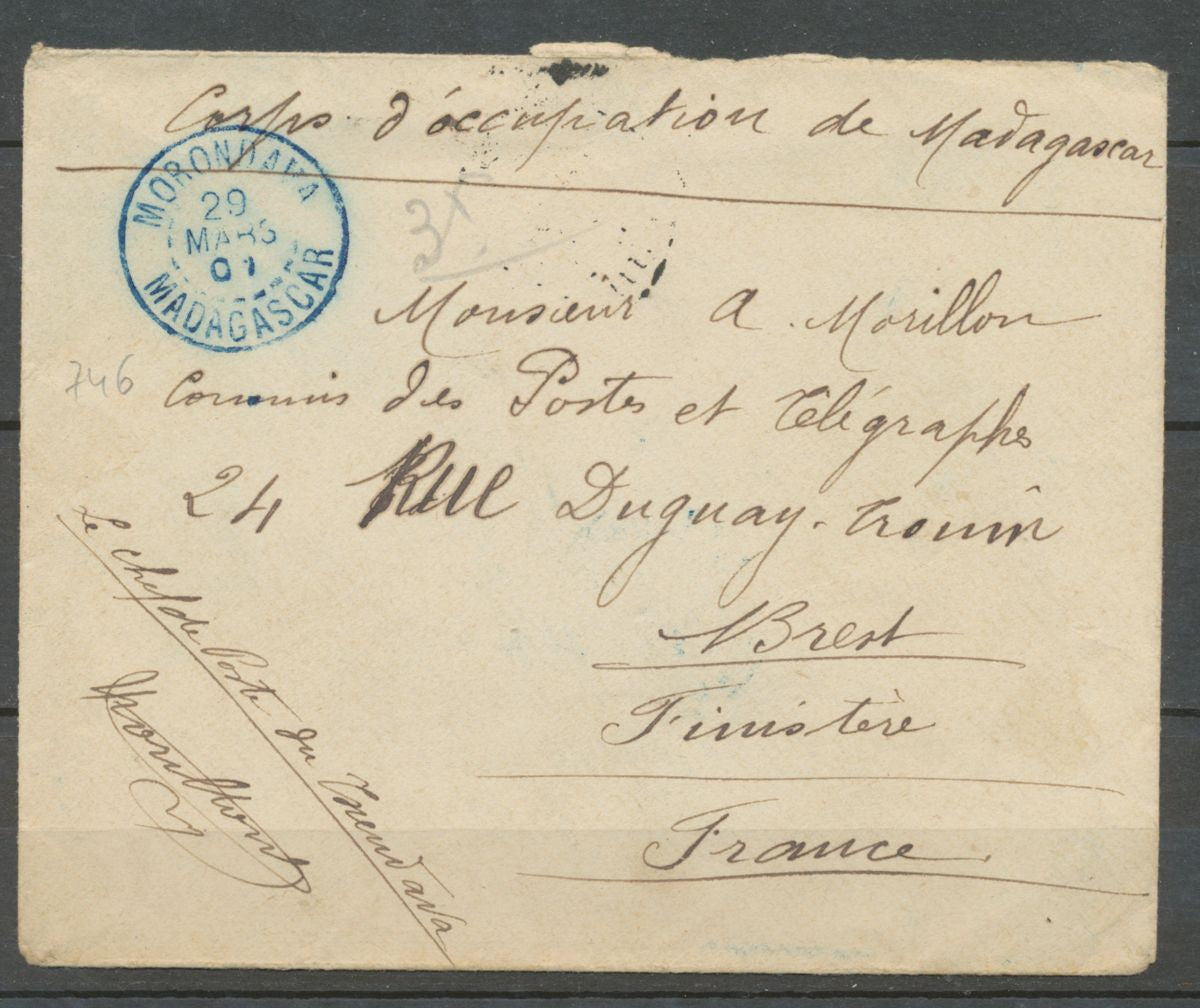 Corps d'occupation de Madagascar
MORONDAVA
29
MARS
01
MADAGASCAR
Monsieur A. Morillon
Commis des Postes et Télégraphes
746
24 Rue Duguay-Trouin
Brest
Finistère
France
Le chef de Poste du